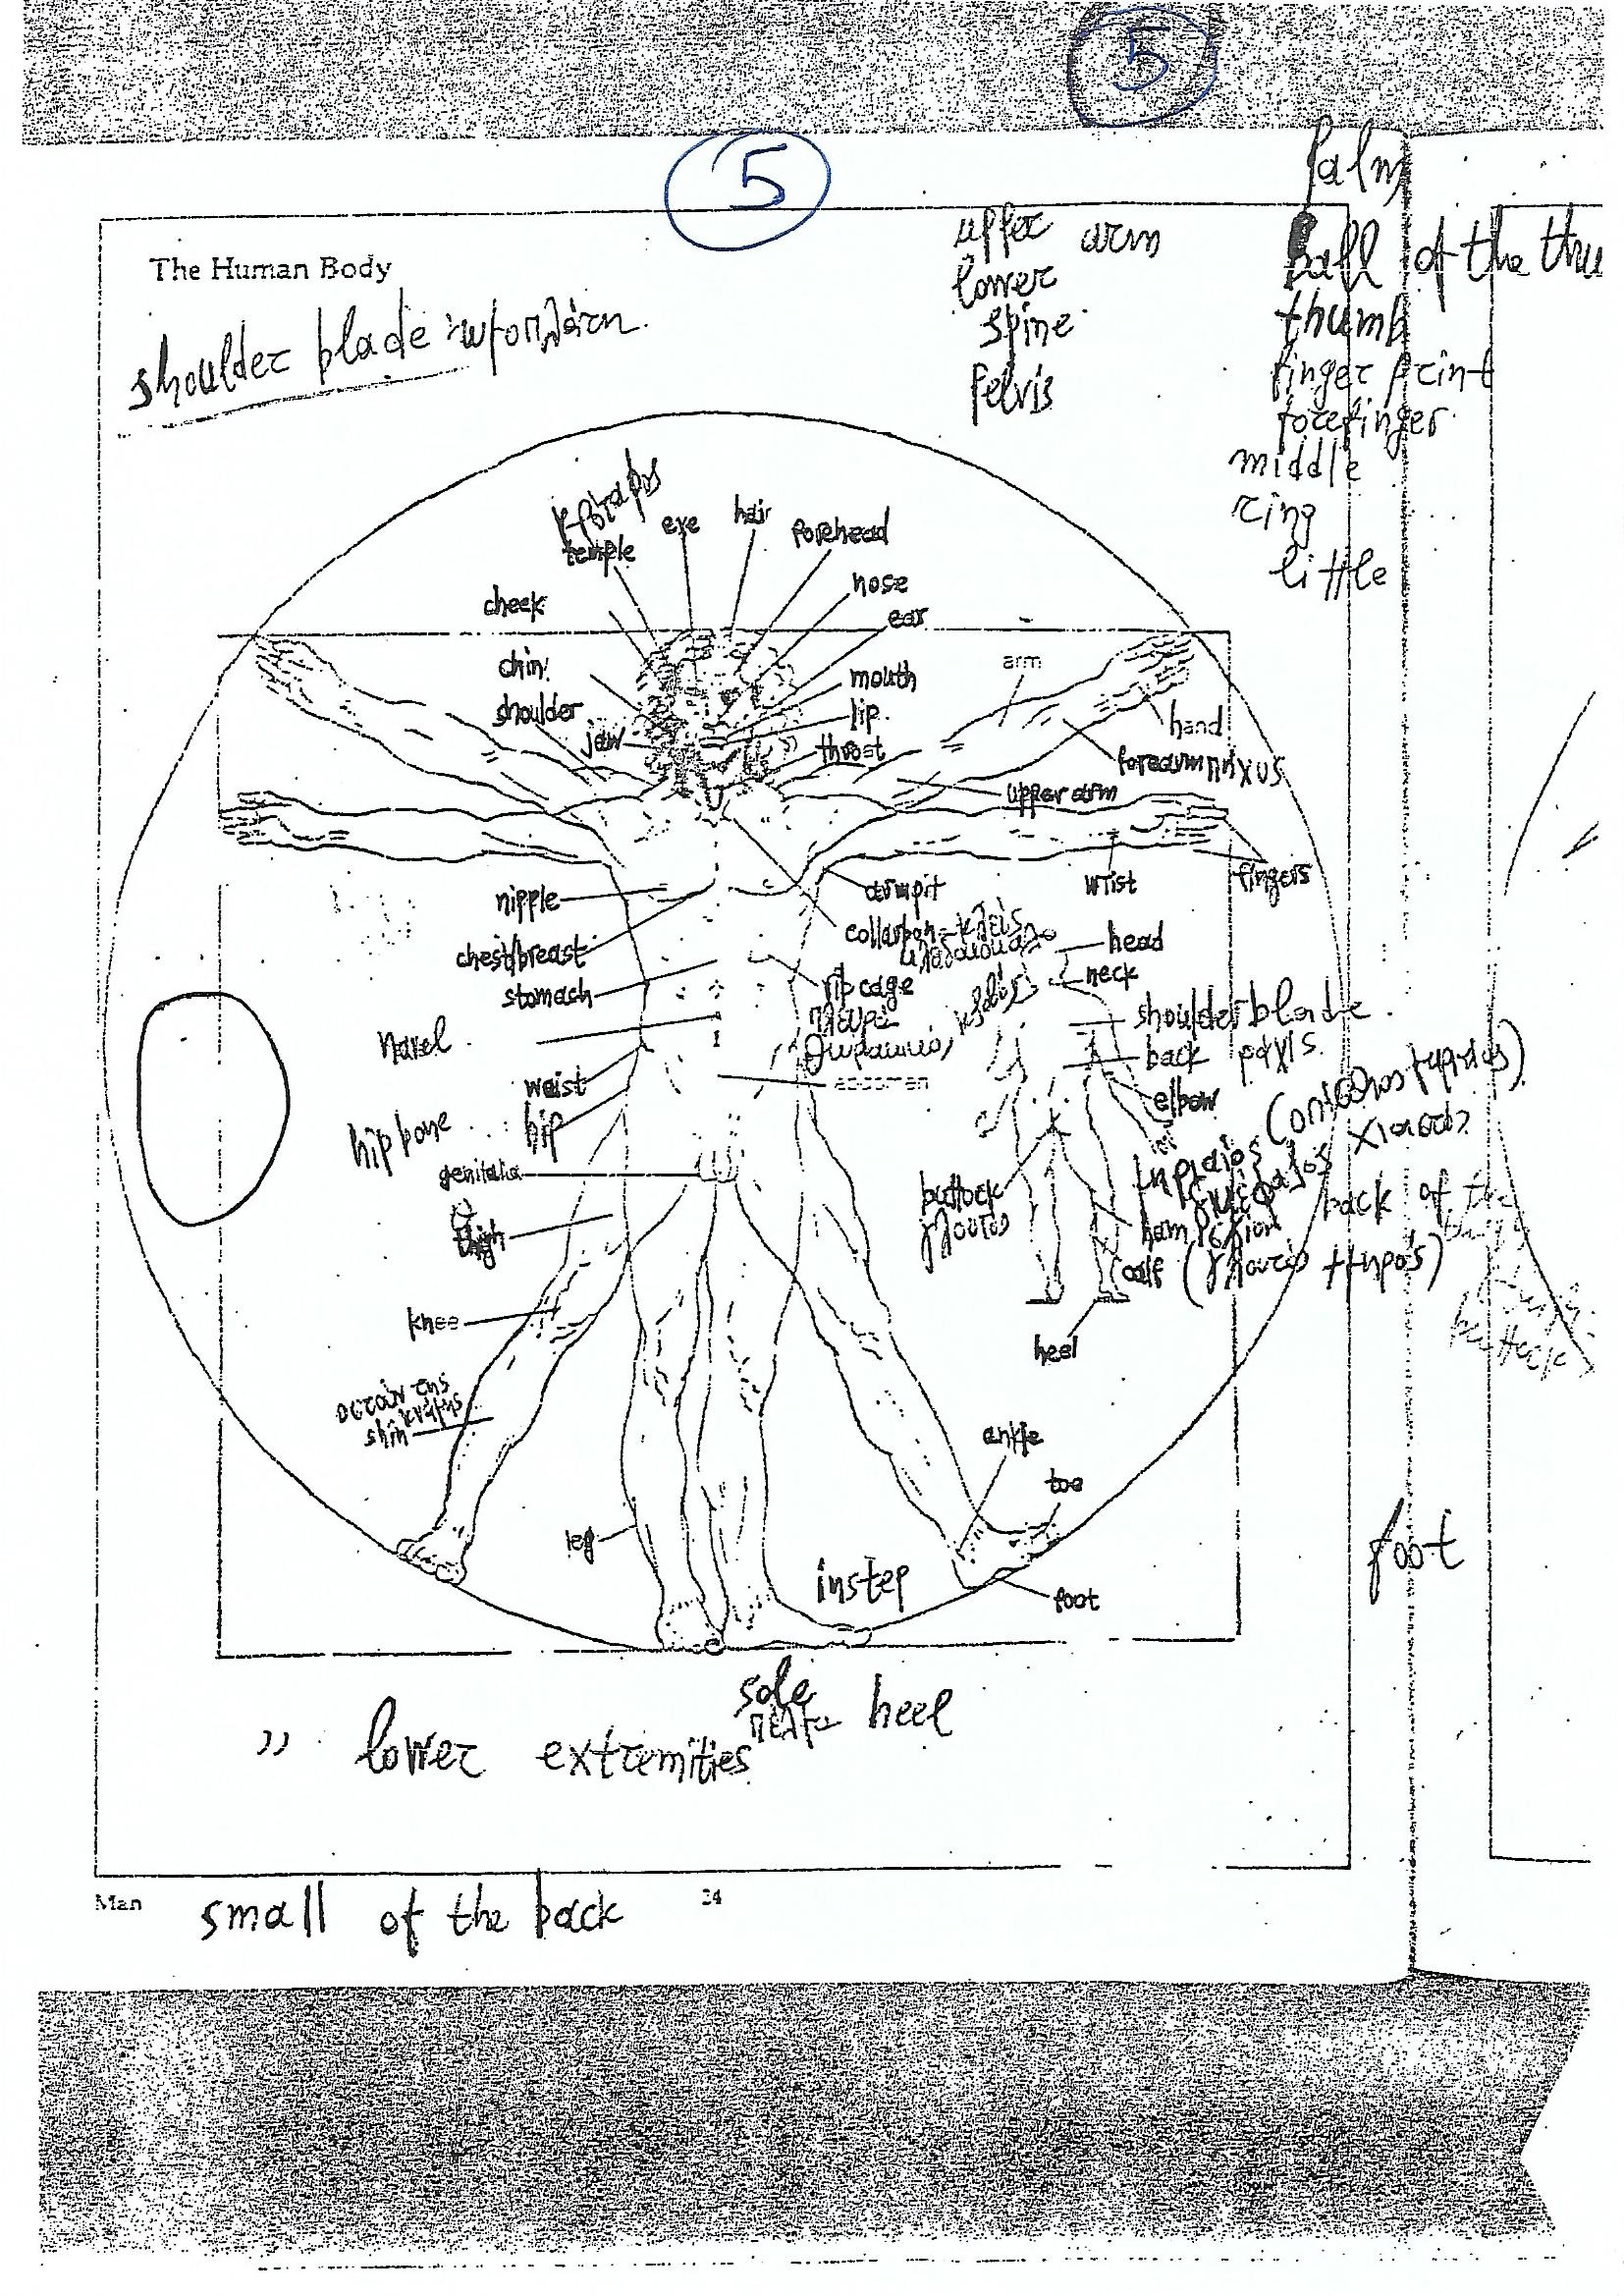 5
5
palm
upper arm
ball of the thu
The Human Body
lower
shoulder blade ωμοπλάτη
spine
thumb
pelvis
finger print
forefinger
middle
ring
little
temple
eye
hair
forehead
cheek
nose
ear
chin
arm
mouth
shoulder
lip
hand
jaw
throat
forearm πήχυς
upper arm
nipple
armpit
wrist
fingers
chest/breast
collarbone κλείς
head
stomach
rib cage
neck
πλευρά
shoulder blade
navel
back ράχις
waist
abdomen
elbow
hip bone
hip
genitalia
buttock
back of the
thigh
ham
calf
knee
heel
buttock
shin
ankle
toe
leg
instep
foot
foot
sole
heel
" lower extremities
Man
small of the back
24